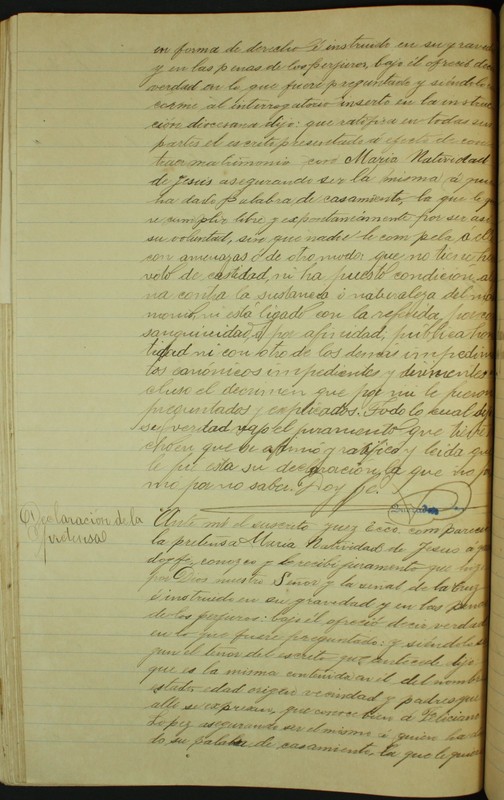 en forma de derecho é instruido en su graved
y en las penas de los perjuros, bajo él ofreció dec
verdad en lo que fuere preguntado y siéndolo
corme al interrogatorio inserto en la instruc
ción diocesana dijo: que ratifica en todas sus
partes el escrito presentado á efecto de con
traer matrimonio con Maria Natividad
de Jesus asegurando ser la misma á quien
ha dado palabra de casamiento, la que le q
re cumplir libre y expontaneamente por ser así
su voluntad, sin que nadie le compela á ell
con amenazas ó de otro modo: que no tiene he
voto de castidad, ni ha puesto condicion, al
na contra la sustancia ó naturaleza del ma
monio, ni está ligado con la repetida, por co
sanguinidad, ó por afinidad, pública hon
tidad ni con otro de los demas impedim
tos canónicos impedientes y dirimentes
cluso el decrimen que por mi le fueron
preguntados y explicados. Todo lo cual dijo
ser verdad bajo el juramento que tiene
cho en que se afirmó y ratificó y leida que
le fué esta su declaracion, la que no fir
mó por no saber. Doy fé.
Declaracion de la
pretensa
Ante mí el suscrito juez ecco. compareció
la pretensa Maria Natividad de Jesus á q
doy fé conozco y le recibí juramento que hizo
por Dios nuestro Señor y la señal de la Cruz
é instruida en su gravedad y en las penas
de los perjuros: bajo él ofreció decir verdad
en lo que fuere preguntado: y siéndolo se
gun el tenor del escrito que antecede dijo
que es la misma contenida en él del nombre
estado edad origen vecindad y padres que
allí se expresan, que conoce bien á Feliciano
Lopez asegurando ser el mismo á quien ha da
do su palabra de casamiento, la que le quiere